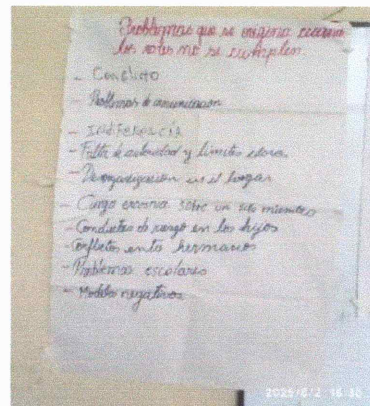 Problemas que se origina cuando
los roles no se cumplen.
- Conflicto
- Problemas de comunicación
- INDIFERENCIA
- Falta de autoridad y limites claros
- Desorganización en el hogar
- Carga excesiva sobre un solo miembro
- Conductas de riesgo en los hijos
- Conflictos entre hermanos
- Problemas escolares
- Modelos negativos
2025/6/2 16: